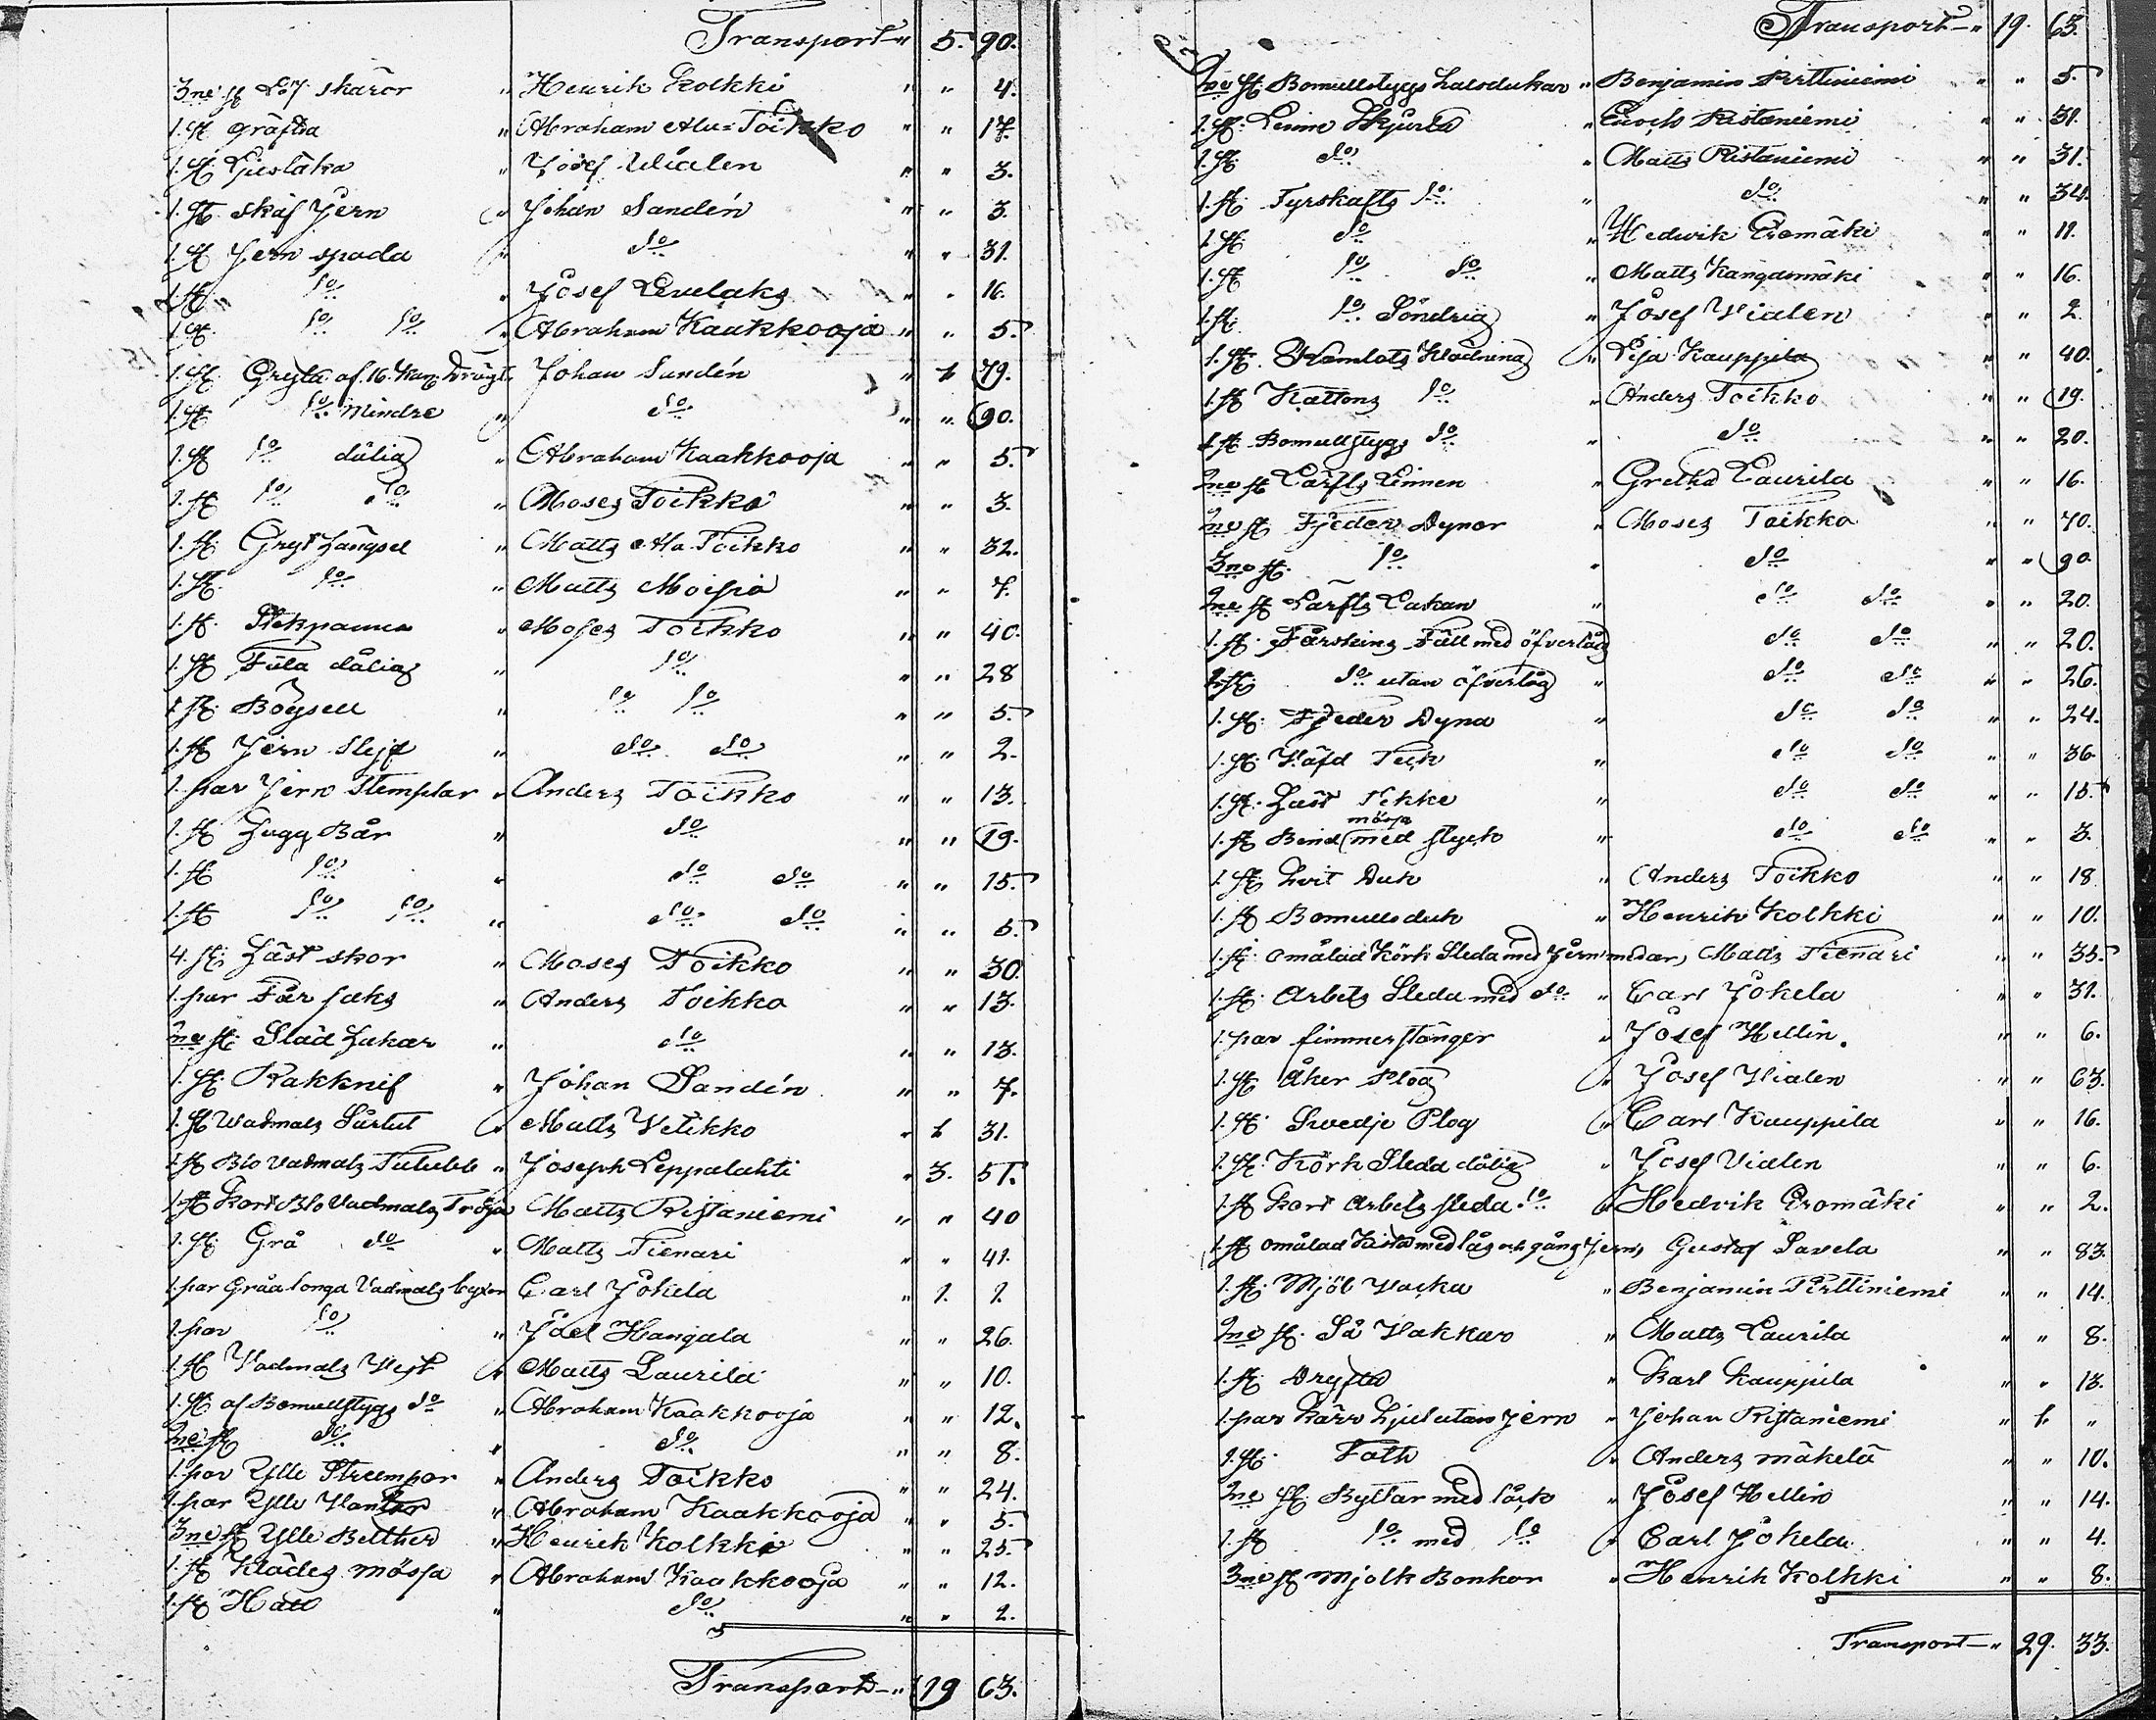 Transport " 5. 90.
3ne st do skäror " Henrik Kolkki " " 4.
1. st gräfta " Abraham Ala=Toikko " " 17.
1. st Ljustäka " Josef Wialen " " 3.
1. st. skaf Jern " Johan Sandén " " 3.
1. st Jern spada " do " " 31.
1. st. do " Josef Levelaks " " 16.
1. st. do do " Abraham Kaakkooja " " 5.
1. st Gryta af. 16. Kan: drägt Johan Sandén " 1. 79.
1. st do mindre " do " " 90.
1. st do dålig " Abraham Kaakkooja " " 5.
1. st do do " Moses Toikko " " 3.
1. st. Gryt hängsel " Matts Ala Toikko " " 32.
1. st. do " Matts Moisio " " 7.
1. st. Stekpanna " Moses Toikko " " 40.
1. st Fila dålig " do " " 28
1. st. Böysell " do do " " 5.
1. st Jern Slejf " do do " " 2.
1. par Jern Stemplar " Anders Toikko " " 13.
1. st Hugg Bår " do " " 19.
1. st do " do do " " 15.
1. st do do " do do " " 5.
4. st. Häst skor " Moses Toikko " " 30.
1. par Får saks " Anders Toikko " " 13.
2ne st. Släd Hakar " do " " 13.
1. st. Rakknif " Johan Sandén " " 7.
1. st Wadmals Surtut " Matts Wetikko " 1. 31.
1. st Blo Vadmals Tulubb " Joseph Leppalahti " 3. 51.
1. st Kort Blo Vadmals Tröja Matts Ristaniemi " " 40
1. st. Grå do " Matts Tienari " " 41.
1. par Gråa longa Vadmals byxor Carl Jokela " 1. 1.
1. par do " Joel Hangala " " 26.
1. st Vadmals West " Matts Laurila " " 10.
1. st af Bomullstygs do " Abraham Kaakkooja " " 12.
2ne st do " do " " 8.
1. par Ylle Strumpor " Anders Toikko " " 24.
1. par Ylle Vantar " Abraham Kaakkooja " " 5.
3ne st Ylle Belther " Henrik Kolkki " " 25.
1. st Klädes mössa " Abraham Kaakkooja " " 12.
1. st Hatt " do " " 2.
Transport " 19 63.
Transport " 19. 63.
2ne st Bomullstygs halsdukar " Benjamin Pirttiniemi " " 5.
1. st. Linne Skjurta " Enoch Ristaniemi " " 31.
1. st. do " Matts Ristaniemi " " 31.
1. st. Tyrskafts do " do " " 34.
1. st. do " Hedwik Eromäki " " 11.
1. st do do " Matts Kangasmäki " " 16.
1. st. do Söndrig " Josef Wialen " " 2.
1. st. Kamlots Klädning " Lisa Kauppila " " 40.
1. st Kattons do " Anders Toikko " " 19.
1. st Bomullstygs do " do " " 20.
2ne st Lärfts Linnen " Gretha Laurila " " 16.
2ne st Fjeder Dynor " Moses Toikko " " 70.
3ne st. do " do " " 90.
2ne st Lärfts Lakan " do do " " 20.
1. st. Fårskins Fäll med öfverlåg do do " " 20.
2. st. do utan öfverlåg " do do " " 26.
1. st. Fjeder Dyna " do do " " 24.
1. st. Wäfd Teck " do do " " 36.
1. st. Häst Tekke " do do " " 15.
1. st Bind mössa med styck " do do " " 3.
1. st. Hvit Duk " Anders Toikko " " 18
1. st Bomulls duk " Henrik Kolkki " " 10.
1. st. omålad Körk Sleda med Jern medar, Matts Tienari " " 35.
1. st. Arbets Sleda med do " Carl Jokela " " 31.
1. par fimmerstänger " Josef Hellin. " " 6.
1. st Åker Plog " Josef Wialen " " 63.
1. st. Swedje Plog " Carl Kauppila " " 16.
1. st. Körk Sleda dålig " Josef Vialen " " 6.
1. st Kort Arbets sleda do " Hedvik Eromäki " " 2.
1. st omålad Kista med lås och gång jern, Gustaf Savela " " 83.
1. st. Mjöl Wacka " Benjamin Pirttiniemi " " 14.
2ne st. Så Wakkar " Matts Laurila " " 8.
1. st. Dryfta " Karl Kauppila " " 13.
1. par Kärr hjul utan jern " Johan Ristaniemi " 1. "
1. st. Fath " Anders mäkelä " " 10.
2ne st Byttar med låck " Josef Hellin " " 14.
1. st do med do " Carl Jokela " " 4.
3ne st Mjölk Bonkor " Henrik Kolkki " " 8.
Transport " 29. 33.